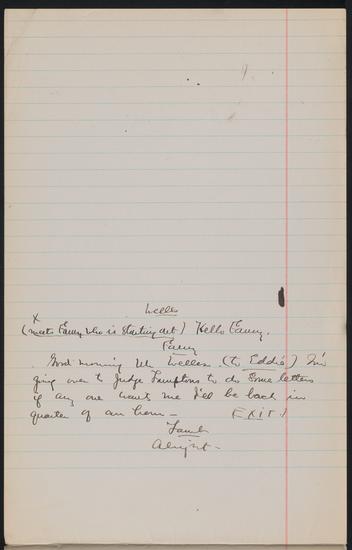 Weller
x
(meets Fanny who is starting out) Hello Fanny.
Fanny
Good morning Mr Weller. (to Eddie) I'm
going over to Judge Lumptons to do some letters
if any one wants me I'll be back in
quarter of an hour — (EXIT)
Alright —